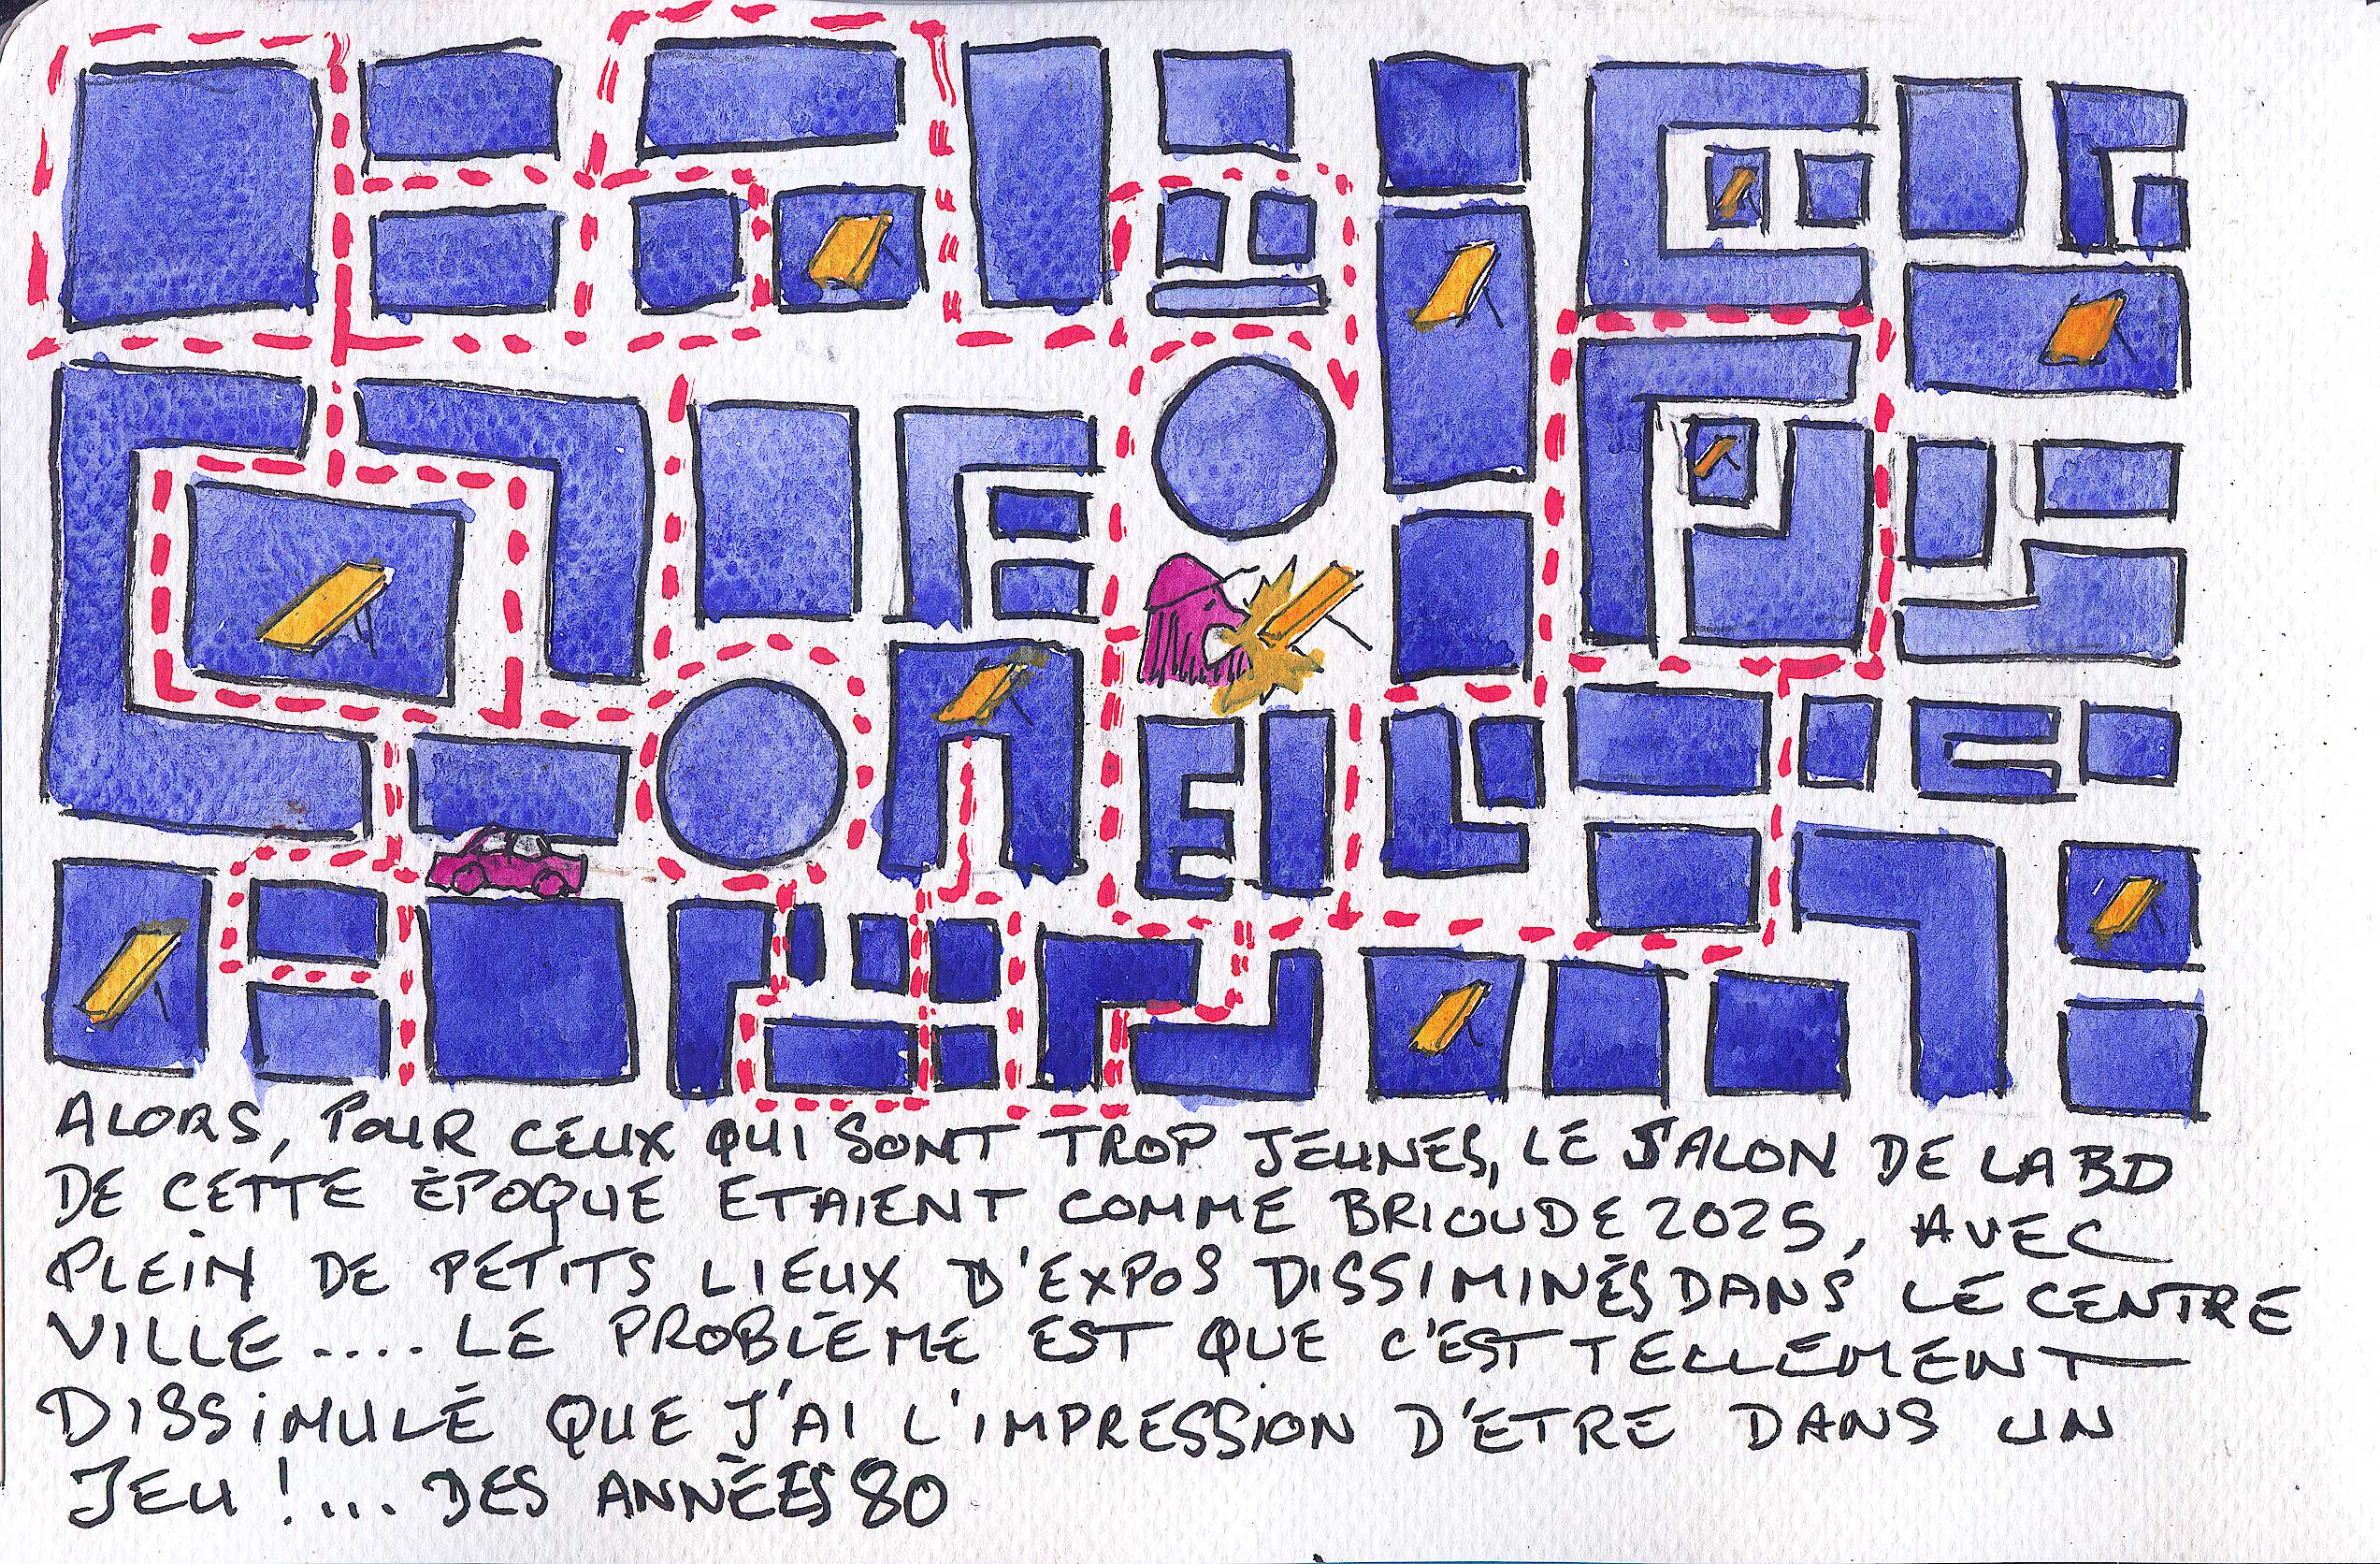 ALORS, POUR CEUX QUI SONT TROP JEUNES, LE SALON DE LA BD
DE CETTE ÉPOQUE ETAIENT COMME BRIOUDE 2025, AVEC
PLEIN DE PETITS LIEUX D'EXPOS DISSIMINÉS DANS LE CENTRE
VILLE .... LE PROBLÈME EST QUE C'EST TELLEMENT
DISSIMULÉ QUE J'AI L'IMPRESSION D'ETRE DANS UN
JEU !... DES ANNÉES 80